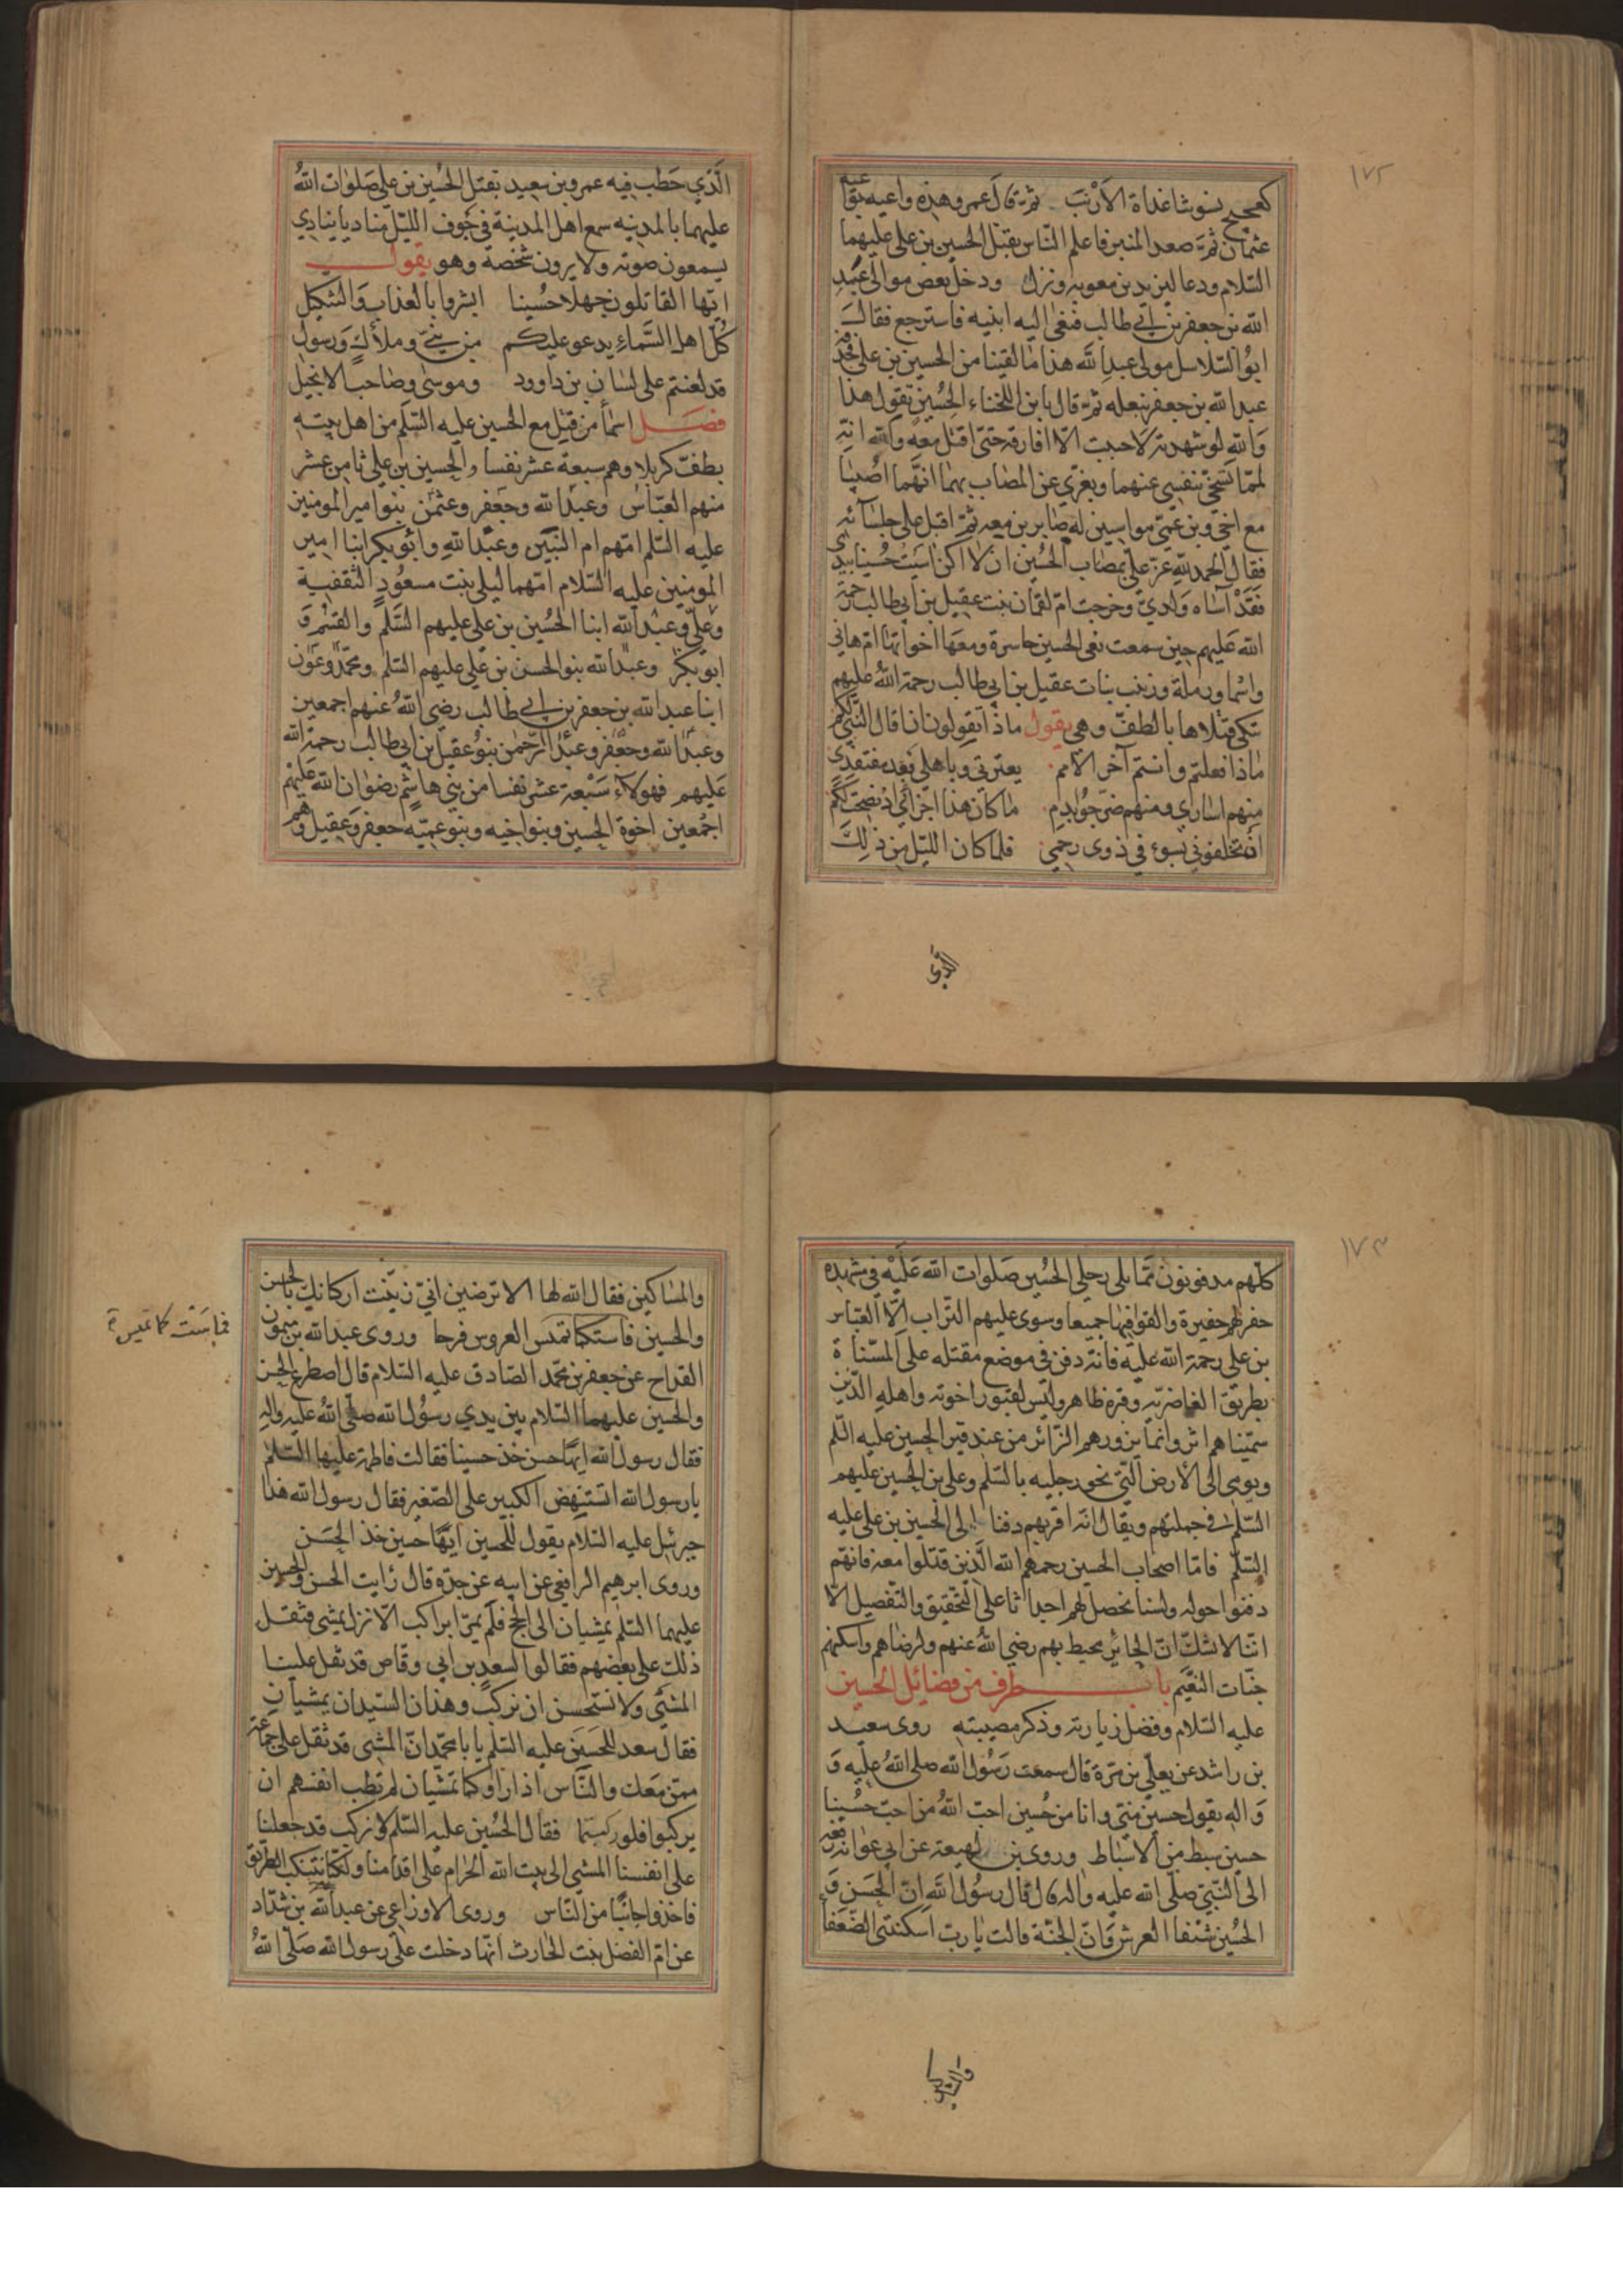 ١٧٢
كعجيج نسوتنا غداة الأرنب ثم قال عمرو هذه واعيه بواعية
عثمان ثم صعد المنبر فاعلم الناس بقتل الحسين بن علي عليهما
السلام ودعا ليزيد بن معوية ونزل ودخل بعض موالى عبد
الله بن جعفر بن ابي طالب فنعى اليه ابنيه فاسترجع فقال
ابو السلاسل مولى عبد الله هذا ما لقينا من الحسين بن علي فحذفه
عبد الله بن جعفر بنعله ثم قال يا بن اللخناء اللحسين تقول هذا
والله لو شهدته لاحببت الا افارقه حتى اقتل معه والله انه
لمما تسخى بنفسي عنهما ويعزى عن المصاب بهما انهما اصيبا
مع اخي وبن عمي مواسيين له صابرين معه ثم اقبل على جلسائه
فقال الحمد لله عز علي بمصاب الحسين ان لا اكن اسيت حسينا بيدي
فقد آساه ولدي وخرجت ام لقمان بنت عقيل بن ابي طالب رحمة
الله عليهم حين سمعت نعى الحسين حاسرة ومعها اخواتها ام هاني
واسما ورملة وزينب بنات عقيل بن ابي طالب رحمة الله عليهم
تبكى قتلاها بالطف وهي يقول ماذا تقولون ان قال النبي لكم
ماذا فعلتم وانتم آخر الامم بعترتي وباهلي بعد مفتقدى
منهم اسارى ومنهم ضرجوا بدم ما كان هذا جزائي اذ نصحت لكم
ان تخلفوني بسوء في ذوى رحمي فلما كان الليل من ذلك
الذي
الذي خطب فيه عمرو بن سعيد بقتل الحسين بن علي صلوات الله
عليهما بالمدينه سمع اهل المدينة في جوف الليل مناديا ينادي
يسمعون صوته ولا يرون شخصه وهو يقول
ايها القاتلون جهلا حسينا ابشروا بالعذاب والتنكيل
كل اهل السماء يدعو عليكم من نبي وملأك ورسول
قد لعنتم على لسان بن داوود وموسى وصاحب الانجيل
فصل اسما من قتل مع الحسين عليه السلم من اهل بيته
بطف كربلا وهم سبعة عشر نفسا والحسين بن علي ثامن عشر
منهم العباس وعبد الله وجعفر وعثمن بنو امير المومنين
عليه السلم امهم ام البنين وعبد الله وابو بكر ابنا امير
المومنين عليه السلام امهما ليلى بنت مسعود الثقفية
وعلي وعبد الله ابنا الحسين بن علي عليهم السلم والقسم و
ابو بكر وعبد الله بنو الحسن بن علي عليهم السلم ومحمد وعون
ابنا عبد الله بن جعفر بن ابي طالب رضي الله عنهم اجمعين
وعبد الله وجعفر وعبد الرحمن بنو عقيل بن ابي طالب رحمة الله
عليهم فهولاء سبعة عشر نفسا من بني هاشم رضوان الله عليهم
اجمعين اخوة الحسين وبنو اخيه وبنو عميه جعفر وعقيل وهم
١٧٣
كلهم مدفونون مما يلي رجلي الحسين صلوات الله عليه في مشهده
حفر لهم حفيرة والقوا فيها جميعا وسوى عليهم التراب الا العباس
بن علي رحمة الله عليه فانه دفن في موضع مقتله على المسناة
بطريق الغاضرية وقبره ظاهر وليس لقبور اخوته واهله الذين
سميناهم اثر وانما يزورهم الزائر من عند قبر الحسين عليه السلم
ويومى الى الارض التي نحو رجليه بالسلم وعلي بن الحسين عليهم
السلم في جملتهم ويقال انه اقربهم دفنا الى الحسين بن علي عليه
السلم فاما اصحاب الحسين رحمهم الله الذين قتلوا معه فانهم
دفنوا حوله ولسنا نحصل لهم اجداثا على التحقيق والتفصيل الا
اننا لا نشك ان الحائر محيط بهم رضي الله عنهم وارضاهم واسكنهم
جنات النعيم باب طرف من فضائل الحسين
عليه السلام وفضل زيارته وذكر مصيبته روى سعيد
بن راشد عن يعلي بن مرة قال سمعت رسول الله صلى الله عليه و
واله يقول حسين منى وانا من حسين احب الله من احب حسينا
حسين سبط من الاسباط وروى بن لهيعة عن ابي عوانه رفعه
الى النبي صلى الله عليه واله قال قال رسول الله ان الحسن و
الحسين شنفا العرش وان الجنة قالت يا رب اسكنتني الضعفا
والمساكين
والمساكين فقال الله لها الا ترضين اني زينت اركانك بالحسن
والحسين فاستكما تميس العروس فرحا وروى عبد الله بن ميمون
فماست كما تميس
القداح عن جعفر بن محمد الصادق عليه السلام قال اصطرع الحسن
والحسين عليهما السلام بين يدي رسول الله صلى الله عليه واله
فقال رسول الله ايها حسن خذ حسينا فقالت فاطمة عليها السلم
يا رسول الله اتستنهض الكبير على الصغير فقال رسول الله هذا
جبرئيل عليه السلام يقول للحسين ايها حسين خذ الحسن
وروى ابرهيم الرافعي عن ابيه عن جده قال رايت الحسن والحسين
عليهما السلم يمشيان الى الحج فلم يمرا براكب الا نزل يمشي فثقل
ذلك على بعضهم فقالوا لسعد بن ابي وقاص قد ثقل علينا
المشي ولا نستحسن ان نركب وهذان السيدان يمشيان
فقال سعد للحسن عليه السلم يا با محمد ان المشى قد ثقل على جماعة
ممن معك والناس اذا راوكما تمشيان لم تطب انفسهم ان
يركبوا فلو ركبتما فقال الحسن عليه السلم لا نركب قد جعلنا
على انفسنا المشي الى بيت الله الحرام على اقدامنا ولكنا نتنكب الطريق
فاخذوا جانبا من الناس وروى الاوزاعي عن عبد الله بن شداد
عن ام الفضل بنت الحارث انها دخلت على رسول الله صلى الله